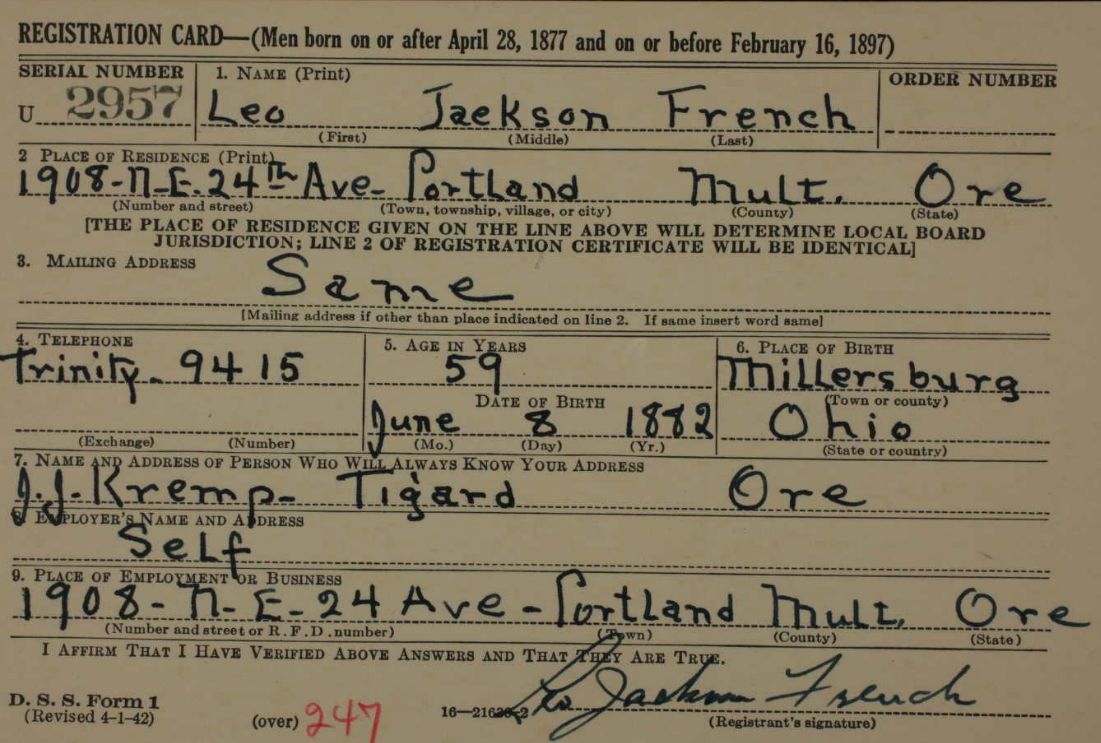 REGISTRATION CARD—(Men born on or after April 28, 1877 and on or before February 16, 1897)
SERIAL NUMBER
1. NAME (Print)
ORDER NUMBER
U 2957
Leo Jackson French
(First) (Middle) (Last)
2 PLACE OF RESIDENCE (Print)
1908-N-E. 24th Ave- Portland Mult. Ore
(Number and street) (Town, township, village, or city) (County) (State)
[THE PLACE OF RESIDENCE GIVEN ON THE LINE ABOVE WILL DETERMINE LOCAL BOARD
JURISDICTION; LINE 2 OF REGISTRATION CERTIFICATE WILL BE IDENTICAL]
3. MAILING ADDRESS
Same
[Mailing address if other than place indicated on line 2. If same insert word same]
4. TELEPHONE
Trinity- 9415
(Exchange) (Number)
5. AGE IN YEARS
59
DATE OF BIRTH
June 8 1882
(Mo.) (Day) (Yr.)
6. PLACE OF BIRTH
Millersburg
(Town or county)
Ohio
(State or country)
7. NAME AND ADDRESS OF PERSON WHO WILL ALWAYS KNOW YOUR ADDRESS
J.J. Kremp- Tigard Ore
8. EMPLOYER'S NAME AND ADDRESS
Self
9. PLACE OF EMPLOYMENT OR BUSINESS
1908-N-E-24 Ave-Portland Mult. Ore
(Number and street or R.F.D. number) (Town) (County) (State)
I AFFIRM THAT I HAVE VERIFIED ABOVE ANSWERS AND THAT THEY ARE TRUE.
D. S. S. Form 1
(Revised 4-1-42) (over) 247
Leo Jackson French
(Registrant's signature)